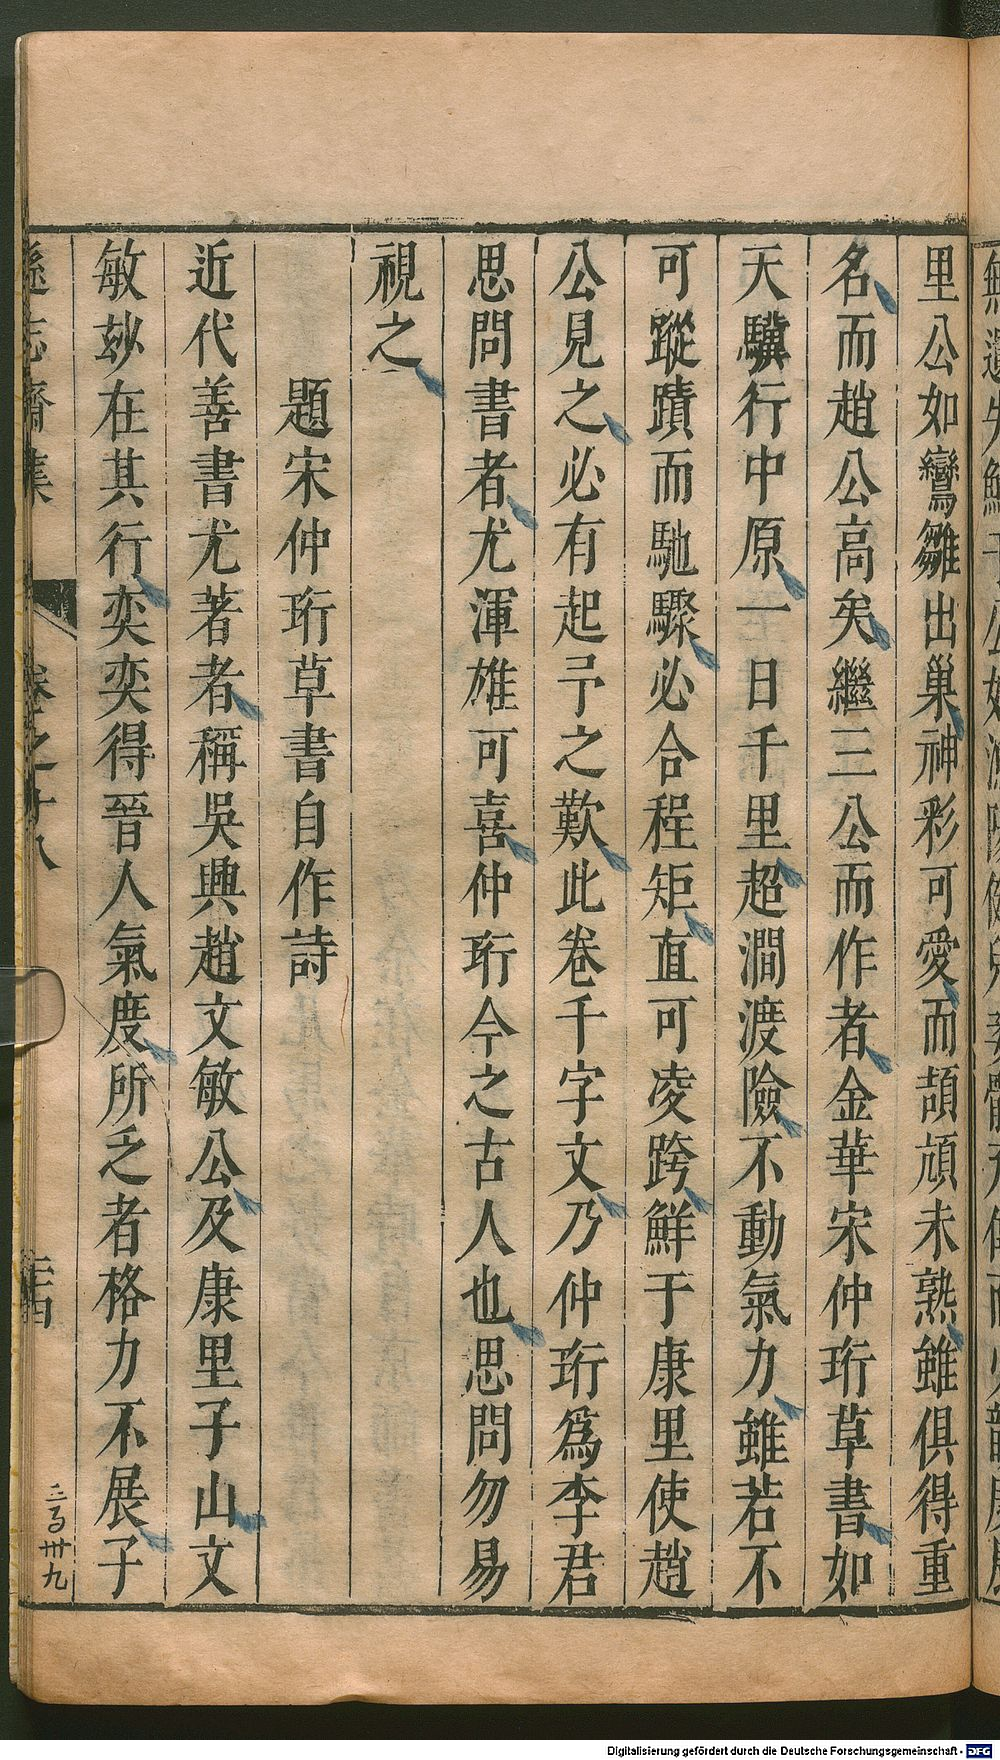 里公如鸞雛出巢神彩可愛而頡頏未熟雖俱得重
名而趙公高矣繼三公而作者金華宋仲珩草書如
天驥行中原一日千里超澗渡險不動氣力雖若不
可蹤蹟而馳驟必合程矩直可凌跨鮮于康里使趙
公見之必有起予之歎此卷千字文乃仲珩爲李君
思問書者尤渾雄可喜仲珩今之古人也思問勿易
視之
題宋仲珩草書自作詩
近代善書尤著者稱吳興趙文敏公及康里子山文
敏玅在其行奕奕得晉人氣度所乏者格力不展子
遜志齋集 卷之十八 二十四
三百卅九
Digitalisierung gefördert durch die Deutsche Forschungsgemeinschaft - DFG